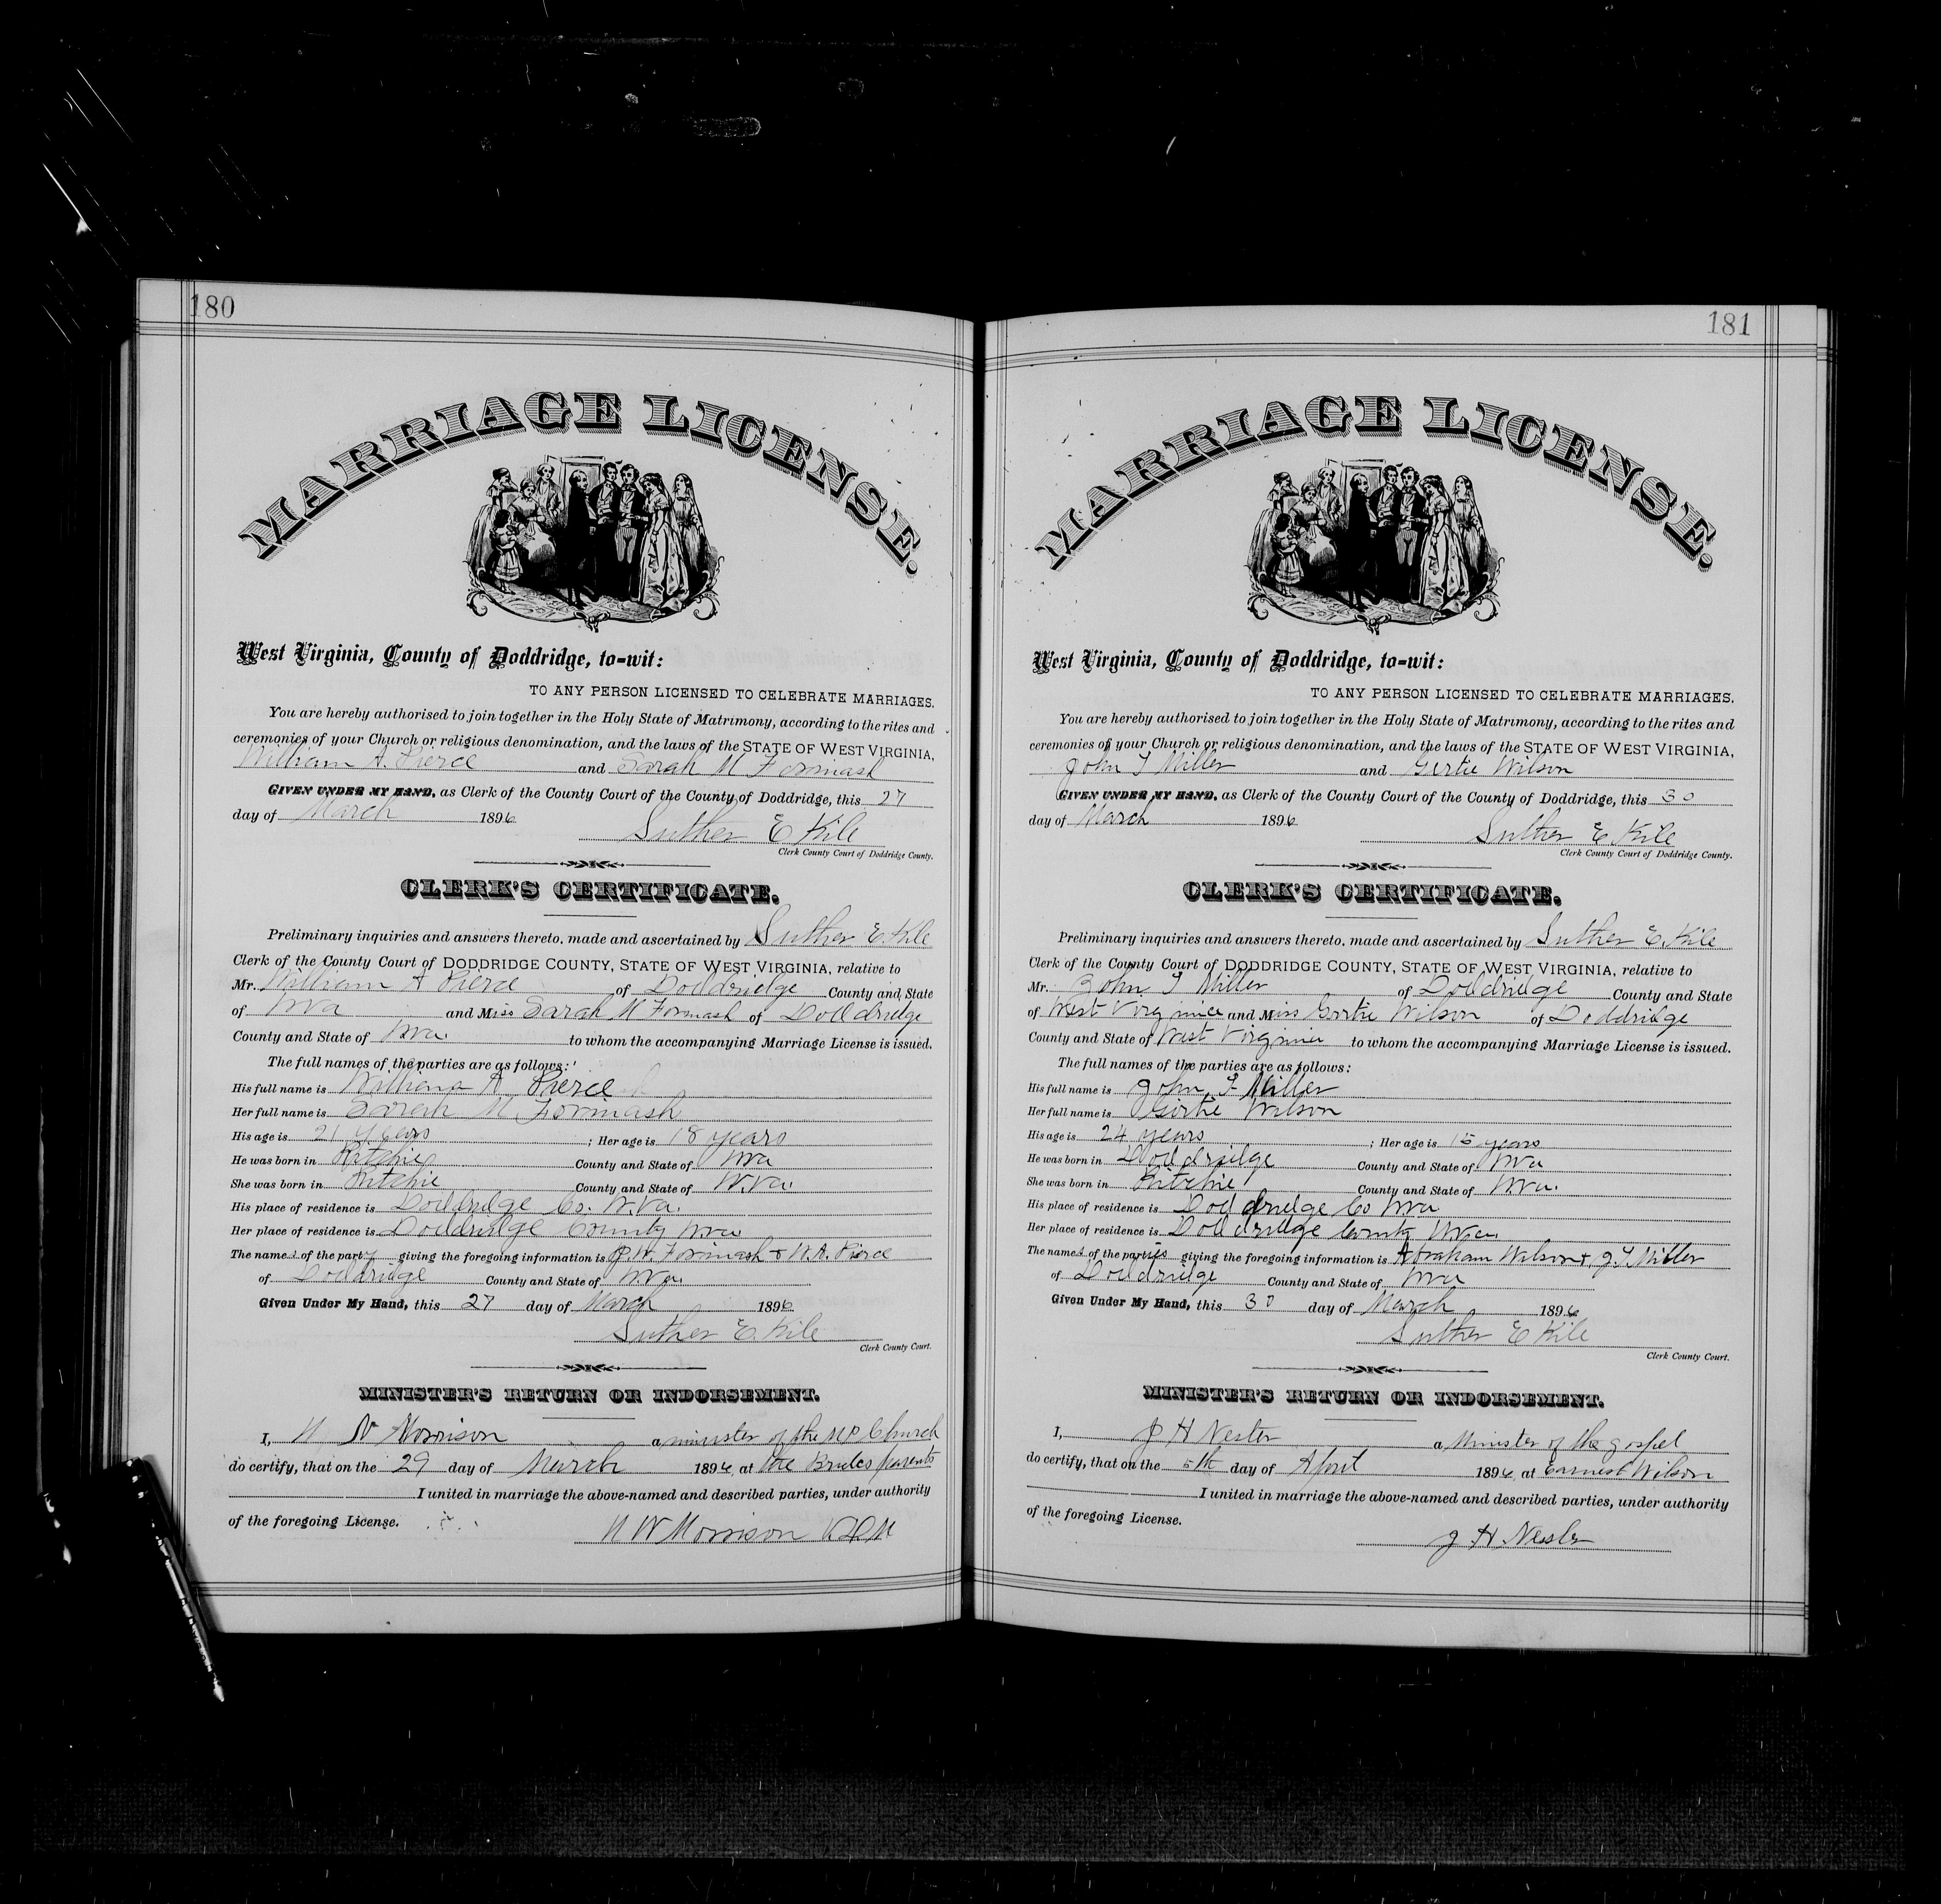 180
MARRIAGE LICENSE.
West Virginia, County of Doddridge, to-wit:
TO ANY PERSON LICENSED TO CELEBRATE MARRIAGES.
You are hereby authorised to join together in the Holy State of Matrimony, according to the rites and
ceremonies of your Church or religious denomination, and the laws of the STATE OF WEST VIRGINIA,
William A. Pierce and Sarah M Formash
GIVEN UNDER MY HAND, as Clerk of the County Court of the County of Doddridge, this 27
day of March 1896
Luther E Kile
Clerk County Court of Doddridge County.
CLERK'S CERTIFICATE.
Preliminary inquiries and answers thereto, made and ascertained by Luther E. Kile
Clerk of the County Court of DODDRIDGE COUNTY, STATE OF WEST VIRGINIA, relative to
Mr. William A Pierce of Doddridge County and State
of Wva and Miss Sarah M Formash of Doddridge
County and State of Wva. to whom the accompanying Marriage License is issued.
The full names of the parties are as follows:
His full name is William A Pierce
Her full name is Sarah M. Formash
His age is 21 years ; Her age is 18 years
He was born in Ritchie County and State of Wva
She was born in Ritchie County and State of W.va.
His place of residence is Doddridge Co. W.va.
Her place of residence is Doddridge County W.va
The names of the party giving the foregoing information is Formash & W.A. Pierce
of Doddridge County and State of Wva.
Given Under My Hand, this 27 day of March 1896
Luther E Kile
Clerk County Court.
MINISTER'S RETURN OR INDORSEMENT.
I, W Morrison a minister of the M P Church
do certify, that on the 29 day of March 1896, at the Brides parents
I united in marriage the above-named and described parties, under authority
of the foregoing License.
W Morrison
181
MARRIAGE LICENSE.
West Virginia, County of Doddridge, to-wit:
TO ANY PERSON LICENSED TO CELEBRATE MARRIAGES.
You are hereby authorised to join together in the Holy State of Matrimony, according to the rites and
ceremonies of your Church or religious denomination, and the laws of the STATE OF WEST VIRGINIA,
John F Miller and Gertie Wilson
GIVEN UNDER MY HAND, as Clerk of the County Court of the County of Doddridge, this 30
day of March 1896
Luther E. Kile
Clerk County Court of Doddridge County.
CLERK'S CERTIFICATE.
Preliminary inquiries and answers thereto, made and ascertained by Luther E. Kile
Clerk of the County Court of DODDRIDGE COUNTY, STATE OF WEST VIRGINIA, relative to
Mr. John F Miller of Doddridge County and State
of West Virginia and Miss Gertie Wilson of Doddridge
County and State of West Virginia to whom the accompanying Marriage License is issued.
The full names of the parties are as follows:
His full name is John F Miller
Her full name is Gertie Wilson
His age is 24 years ; Her age is 15 years
He was born in Doddridge County and State of Wva
She was born in Ritchie County and State of W.va.
His place of residence is Doddridge Co Wva
Her place of residence is Doddridge County W.va.
The names of the parties giving the foregoing information is Abraham Wilson & J. F Miller
of Doddridge County and State of Wva
Given Under My Hand, this 30 day of March 1896
Luther E Kile
Clerk County Court.
MINISTER'S RETURN OR INDORSEMENT.
I, J H Nester a Minister of the gospel
do certify, that on the 5th day of April 1896, at Earnest Wilson
I united in marriage the above-named and described parties, under authority
of the foregoing License.
J H Nester